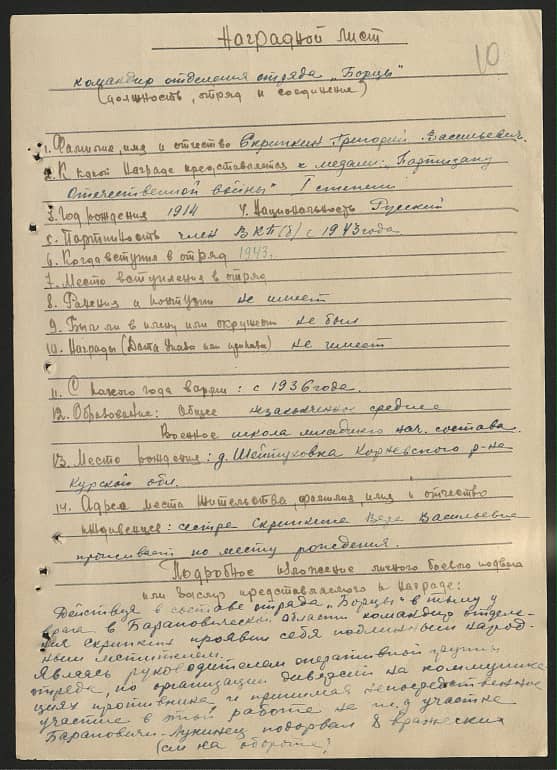 Наградной лист
10
командир отделения отряда „Борцы"
(должность, отряд и соединение)
1. Фамилия, имя и отчество Скрипкин Григорий Васильевич.
2. К какой награде представляется к медали: „Партизану
Отечественной войны" I степени
3. Год рождения 1914 4. Национальность Русский
5. Партийность член ВКП(б) с 1943 года
6. Когда вступил в отряд 1943.
7. Место вступления в отряд
8. Ранения и контузии не имеет
9. Был ли в плену или окружении не был
10. Награды (Дата Указа или приказа) не имеет
11. С какого года в армии: с 1936 года.
12. Образование: Общее незаконченное среднее
Военное школа младшего нач. состава.
13. Место рождения: д. р-на
Курской обл.
14. Адрес места жительства, фамилия, имя и отчество
иждивенцев: сестра Скрипкина Вера Васильевна
проживает по месту рождения.
Подробное изложение личного боевого подвига
или заслуг представляемого к награде:
Действуя в составе отряда „Борцы" в тылу у
врага в Барановической области командир отделе-
ния Скрипкин проявил себя подлинным народ-
ным мстителем.
Являясь руководителем оперативной группы
отряда, по организации диверсий на коммуника-
циях противника и принимая непосредственное
участие в этой работе на ж.д. участке
Барановичи-Лунинец подорвал 8 вражеских
(см на обороте)